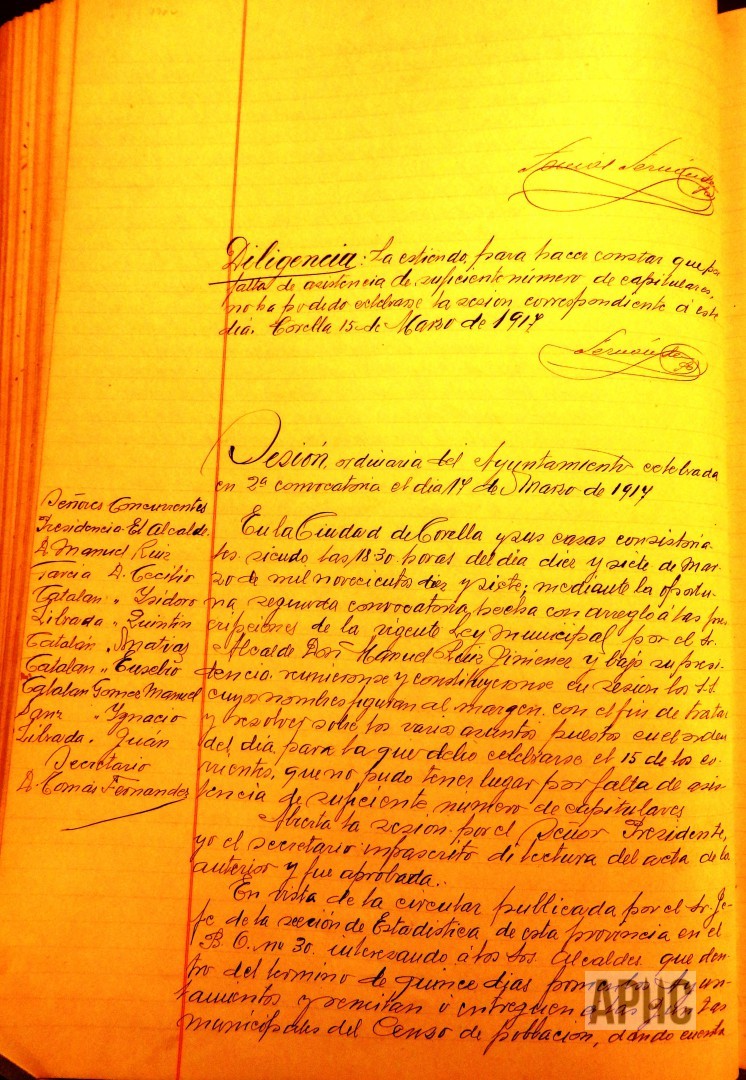 Tomás Fernández
Diligencia: La estiendo, para hacer constar que por
falta de asistencia de suficiente número de capitulares,
no ha podido celebrarse la sesión correspondiente á este
día. Corella 15 de Marzo de 1917
Fernández
Sesión, ordinaria del Ayuntamiento celebrada
en 2ª convocatoria el día 17 de Marzo de 1917
Señores Concurrentes
Presidencia El Alcalde
D. Manuel Ruiz
García D. Cecilio
Catalan " Isidoro
Librada " Quintín
Catalán " Matias
Catalan " Eusebio
Catalan Gomez Manuel
Sanz " Ignacio
Librada " Juán
Secretario
D. Tomás Fernandez
En la Ciudad de Corella y sus casas consistoria-
les siendo las 18 30 horas del día diez y siete de Mar-
zo de mil novecientos diez y siete; mediante la oportu-
na, segunda convocatoria, hecha con arreglo á las pres-
cripciones de la vigente Ley Municipal, por el Sr.
Alcalde Don Manuel Ruiz Jimenez y bajo su presi-
dencia, reunieronse y constituyeronse en sesión los SS.
cuyos nombres figuran al margen, con el fin de tratar
y resolver sobre los varios asuntos puestos en el orden
del día, para la que debió celebrarse el 15 de los co-
rrientes, que no pudo tener lugar por falta de asis-
tencia de suficiente numero de capitulares
Abierta la sesión por el Señor Presidente,
yo el secretario infrascrito dí lectura del acta de la
anterior y fue aprobada.
En vista de la circular publicada por el Sr. Je-
fe de la sección de Estadistica de esta provincia en el
B. O. no 30, interesando á los Srs. Alcaldes, que den-
tro del termino de quince dias formen los Ayun-
tamientos y remitan ó entreguen a las Juntas
municipales del Censo de población, dando cuenta
APHC